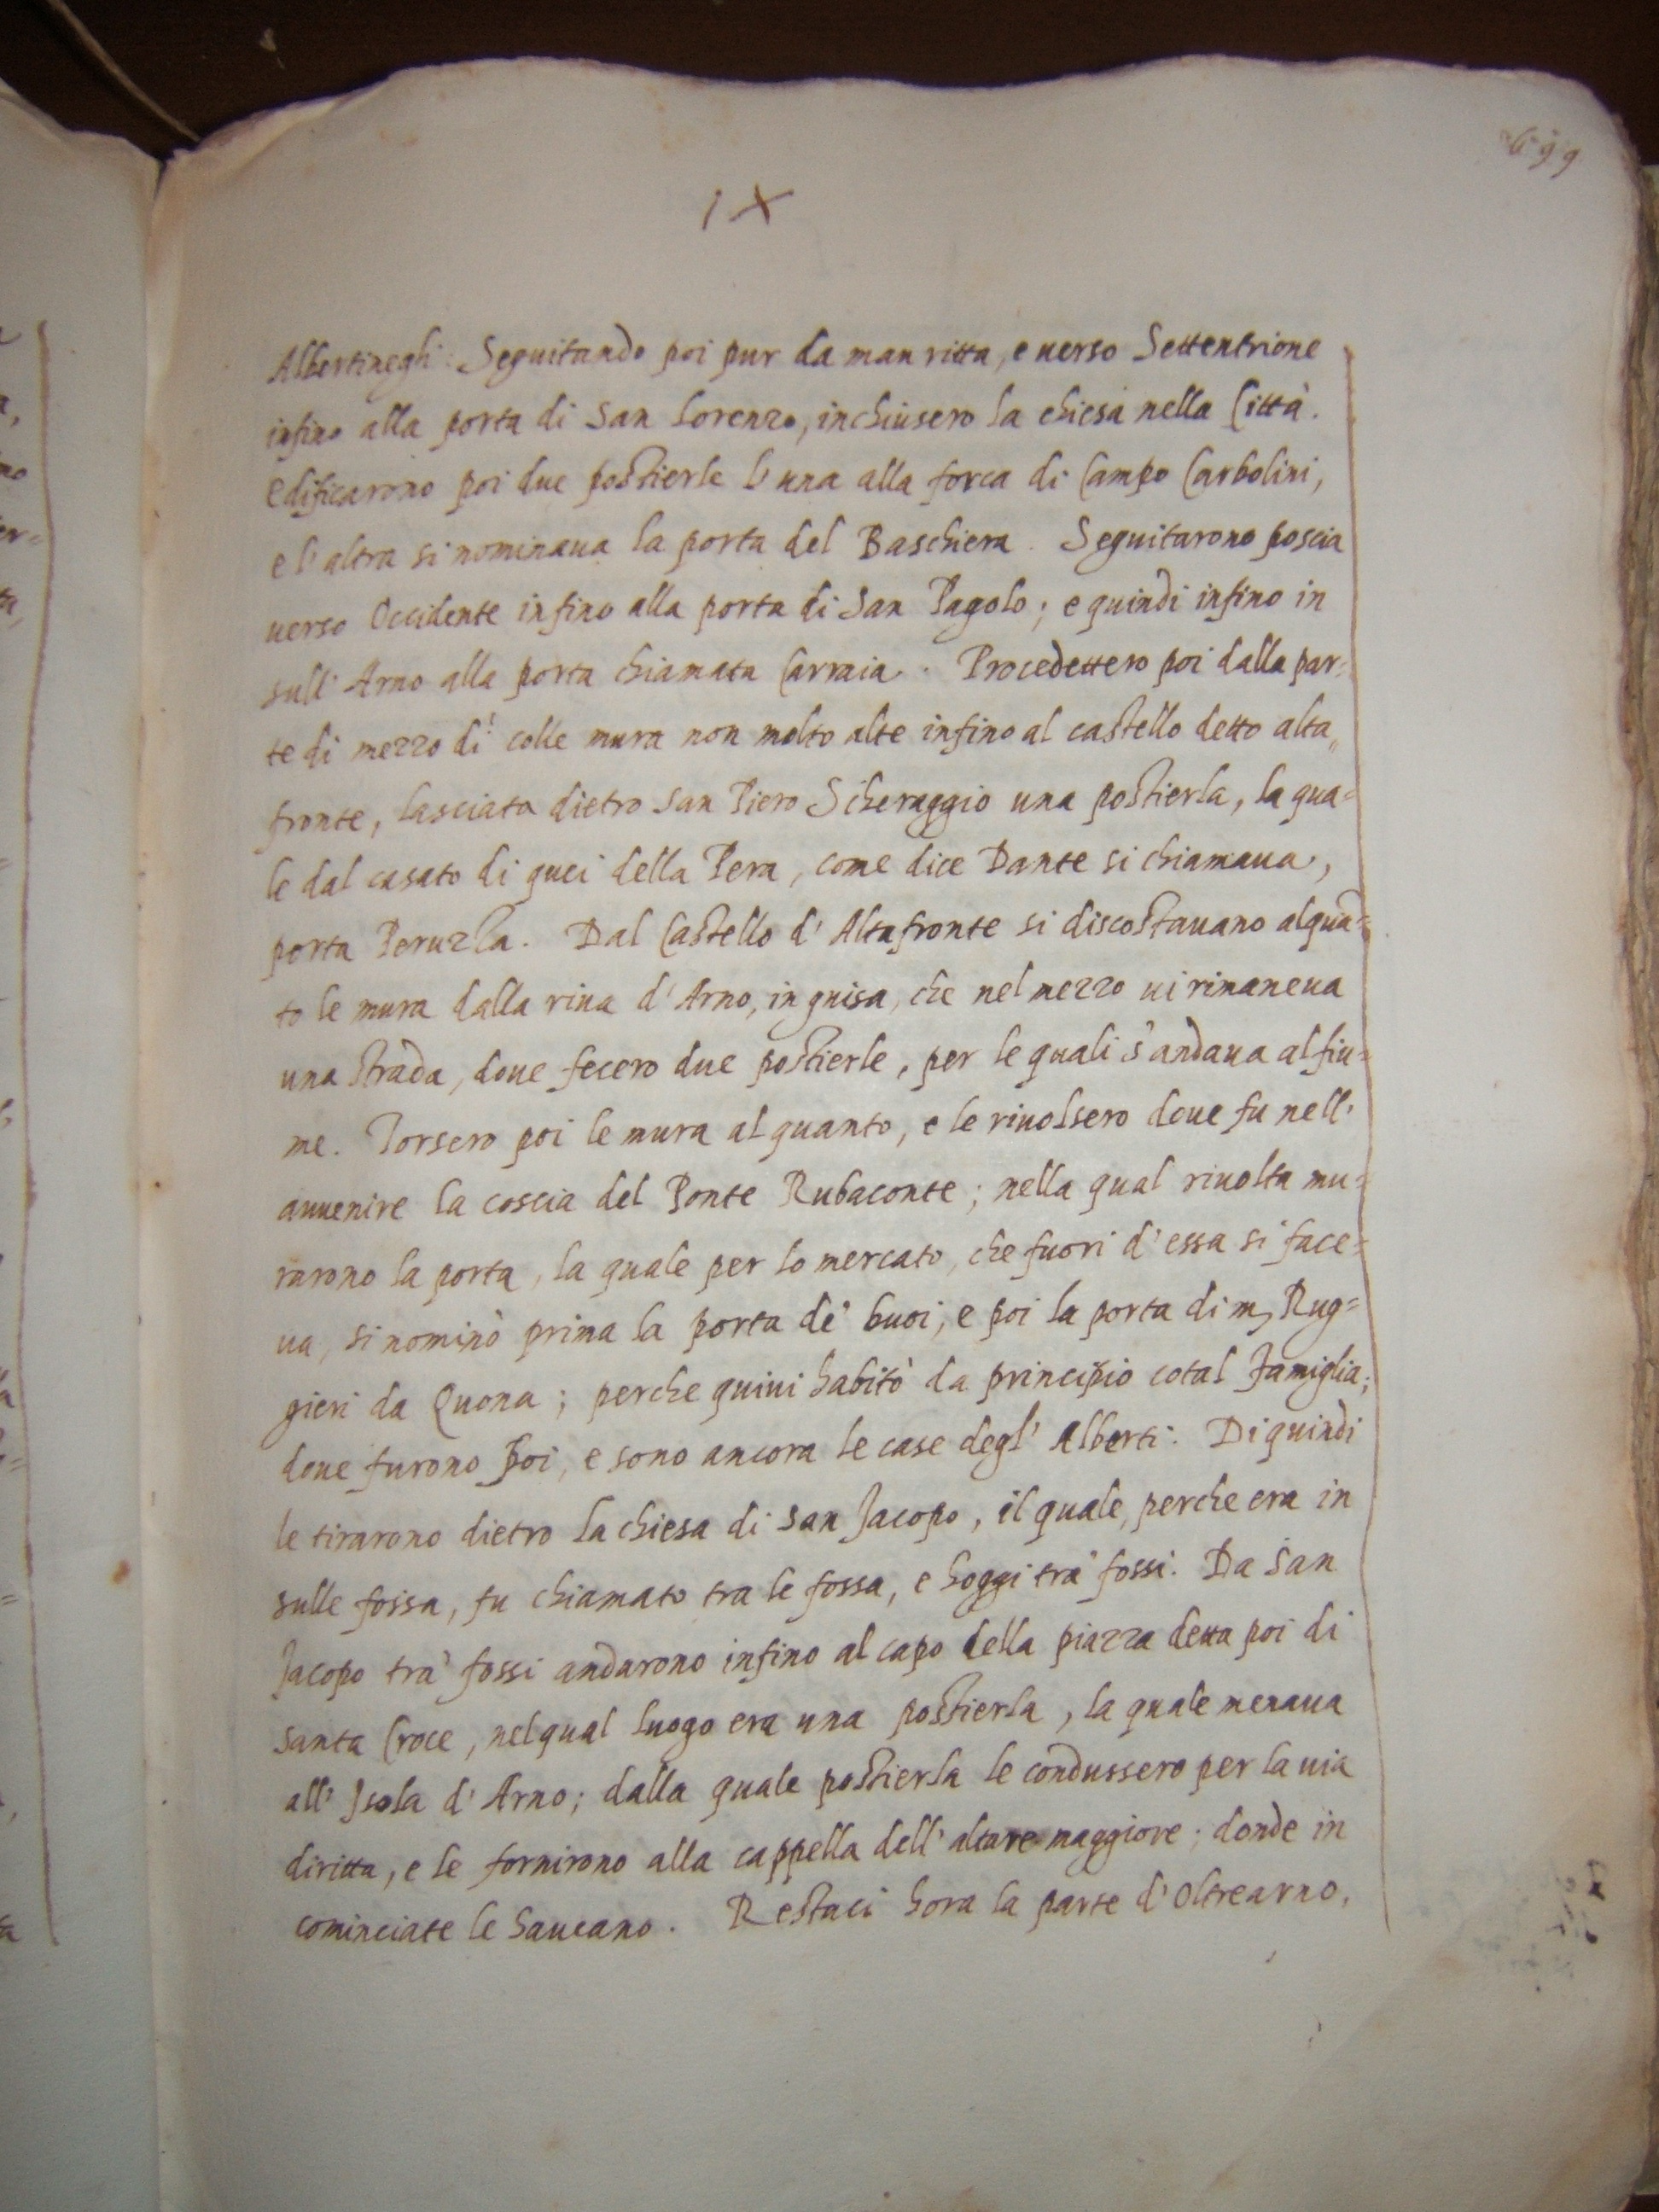 699
IX
Albertineghi. Seguitando poi pur da man ritta, e uerso Settentrione
infino alla porta di San Lorenzo, inchiusero la chiesa nella Città.
Edificarono poi due postierle l'una alla forca di Campo Carbolini,
e l'altra si nominaua la porta del Baschiera. Seguitarono poscia
uerso Occidente infino alla porta di San Pagolo; e quindi infino in
sull'Arno alla porta chiamata Carraia. Procedettero poi dalla par=
te di mezzo dì colle mura non molto alte infino al castello detto alta„
fronte, lasciata dietro San Piero Scheraggio una postierla, la qua=
le dal casato di quei della Pera, come dice Dante si chiamaua,
porta Peruzza. Dal Castello d'Altafronte si discostauano alquā=
to le mura dalla riua d'Arno, in guisa, che nel mezzo ui rimaneua
una strada, doue fecero due postierle, per le quali s'andaua al fiu=
me. Torsero poi le mura al quanto, e le riuolsero doue fu nell'
auuenire la coscia del Ponte Rubaconte; nella qual riuolta mu=
rarono la porta, la quale per lo mercato, che fuori d'essa si face=
ua, si nominò prima la porta de' buoi, e poi la porta di m, Rug=
gieri da Quona; perche quiui habitò da principio cotal famiglia;
doue furono poi, e sono ancora le case degl'Alberti. Di quindi
le tirarono dietro la chiesa di San Jacopo, il quale, perche era in
sulle fossa, fu chiamato tra le fossa, e hoggi tra' fossi. Da San
Jacopo tra' fossi andarono infino al capo della piazza detta poi di
Santa Croce, nel qual luogo era una postierla, la quale menaua
all'Isola d'Arno; dalla quale postierla le condussero per la uia
diritta, e le fornirono alla cappella dell'altare maggiore; donde in
cominciate le haueano. Restaci hora la parte d'Oltrearno,